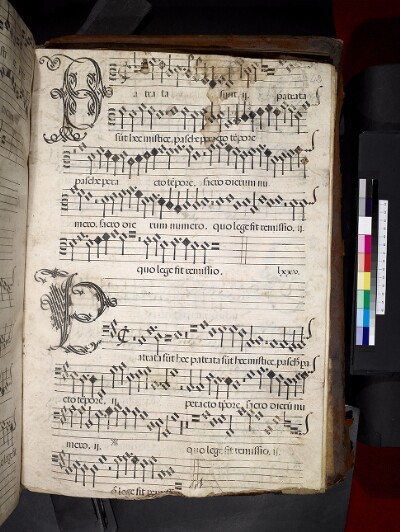 P
a tra ta sunt. ij. patrata
sūt hæc mistice. paschæ peracto tēpore
paschæ pera cto tēpore. sacro dierum nu
mero. sacro die rum numero. quo lege fit remissio. ij.
quo lege fit remissio. lxxv.
P
atrata sūt hæc patrata sūt hæc mistice. pasch pa
cto tēpore. ij. peracto tpore. sacro dierū nu
mero. ij. quo lege fit remissio. ij.
q lege fit